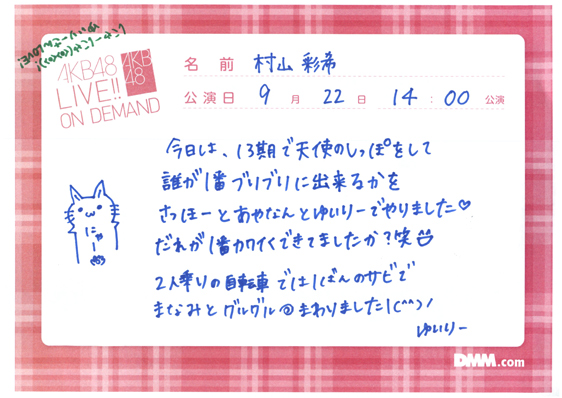 AKB48
LIVE!!
ON DEMAND
AKB
48
名前 村山 彩希
公演日 9月 22日 14:00 公演
今日は、13期で天使のしっぽをして
誰が1番ブリブリに出来るかを
さっほーとあやなんとゆいりーでやりました♡
だれが1番カワイくできてましたか?笑
2人乗りの自転車では1ばんのサビで
まなみとグルグル@まわりました!(^^)!
ゆいりー
にゃー
DMM.com